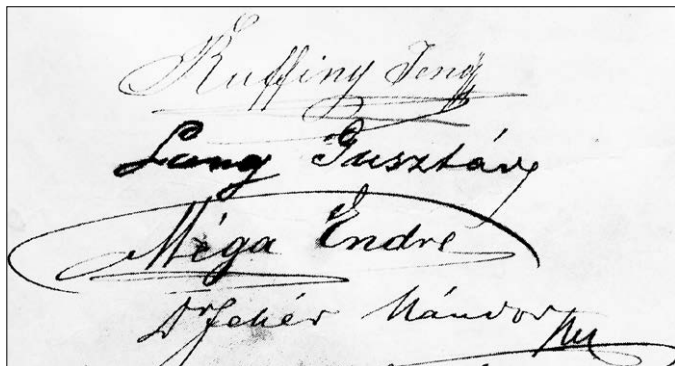 Ruffiny Jenő
Lang Gusztáv
Méga Endre
Dr Fehér Nándor